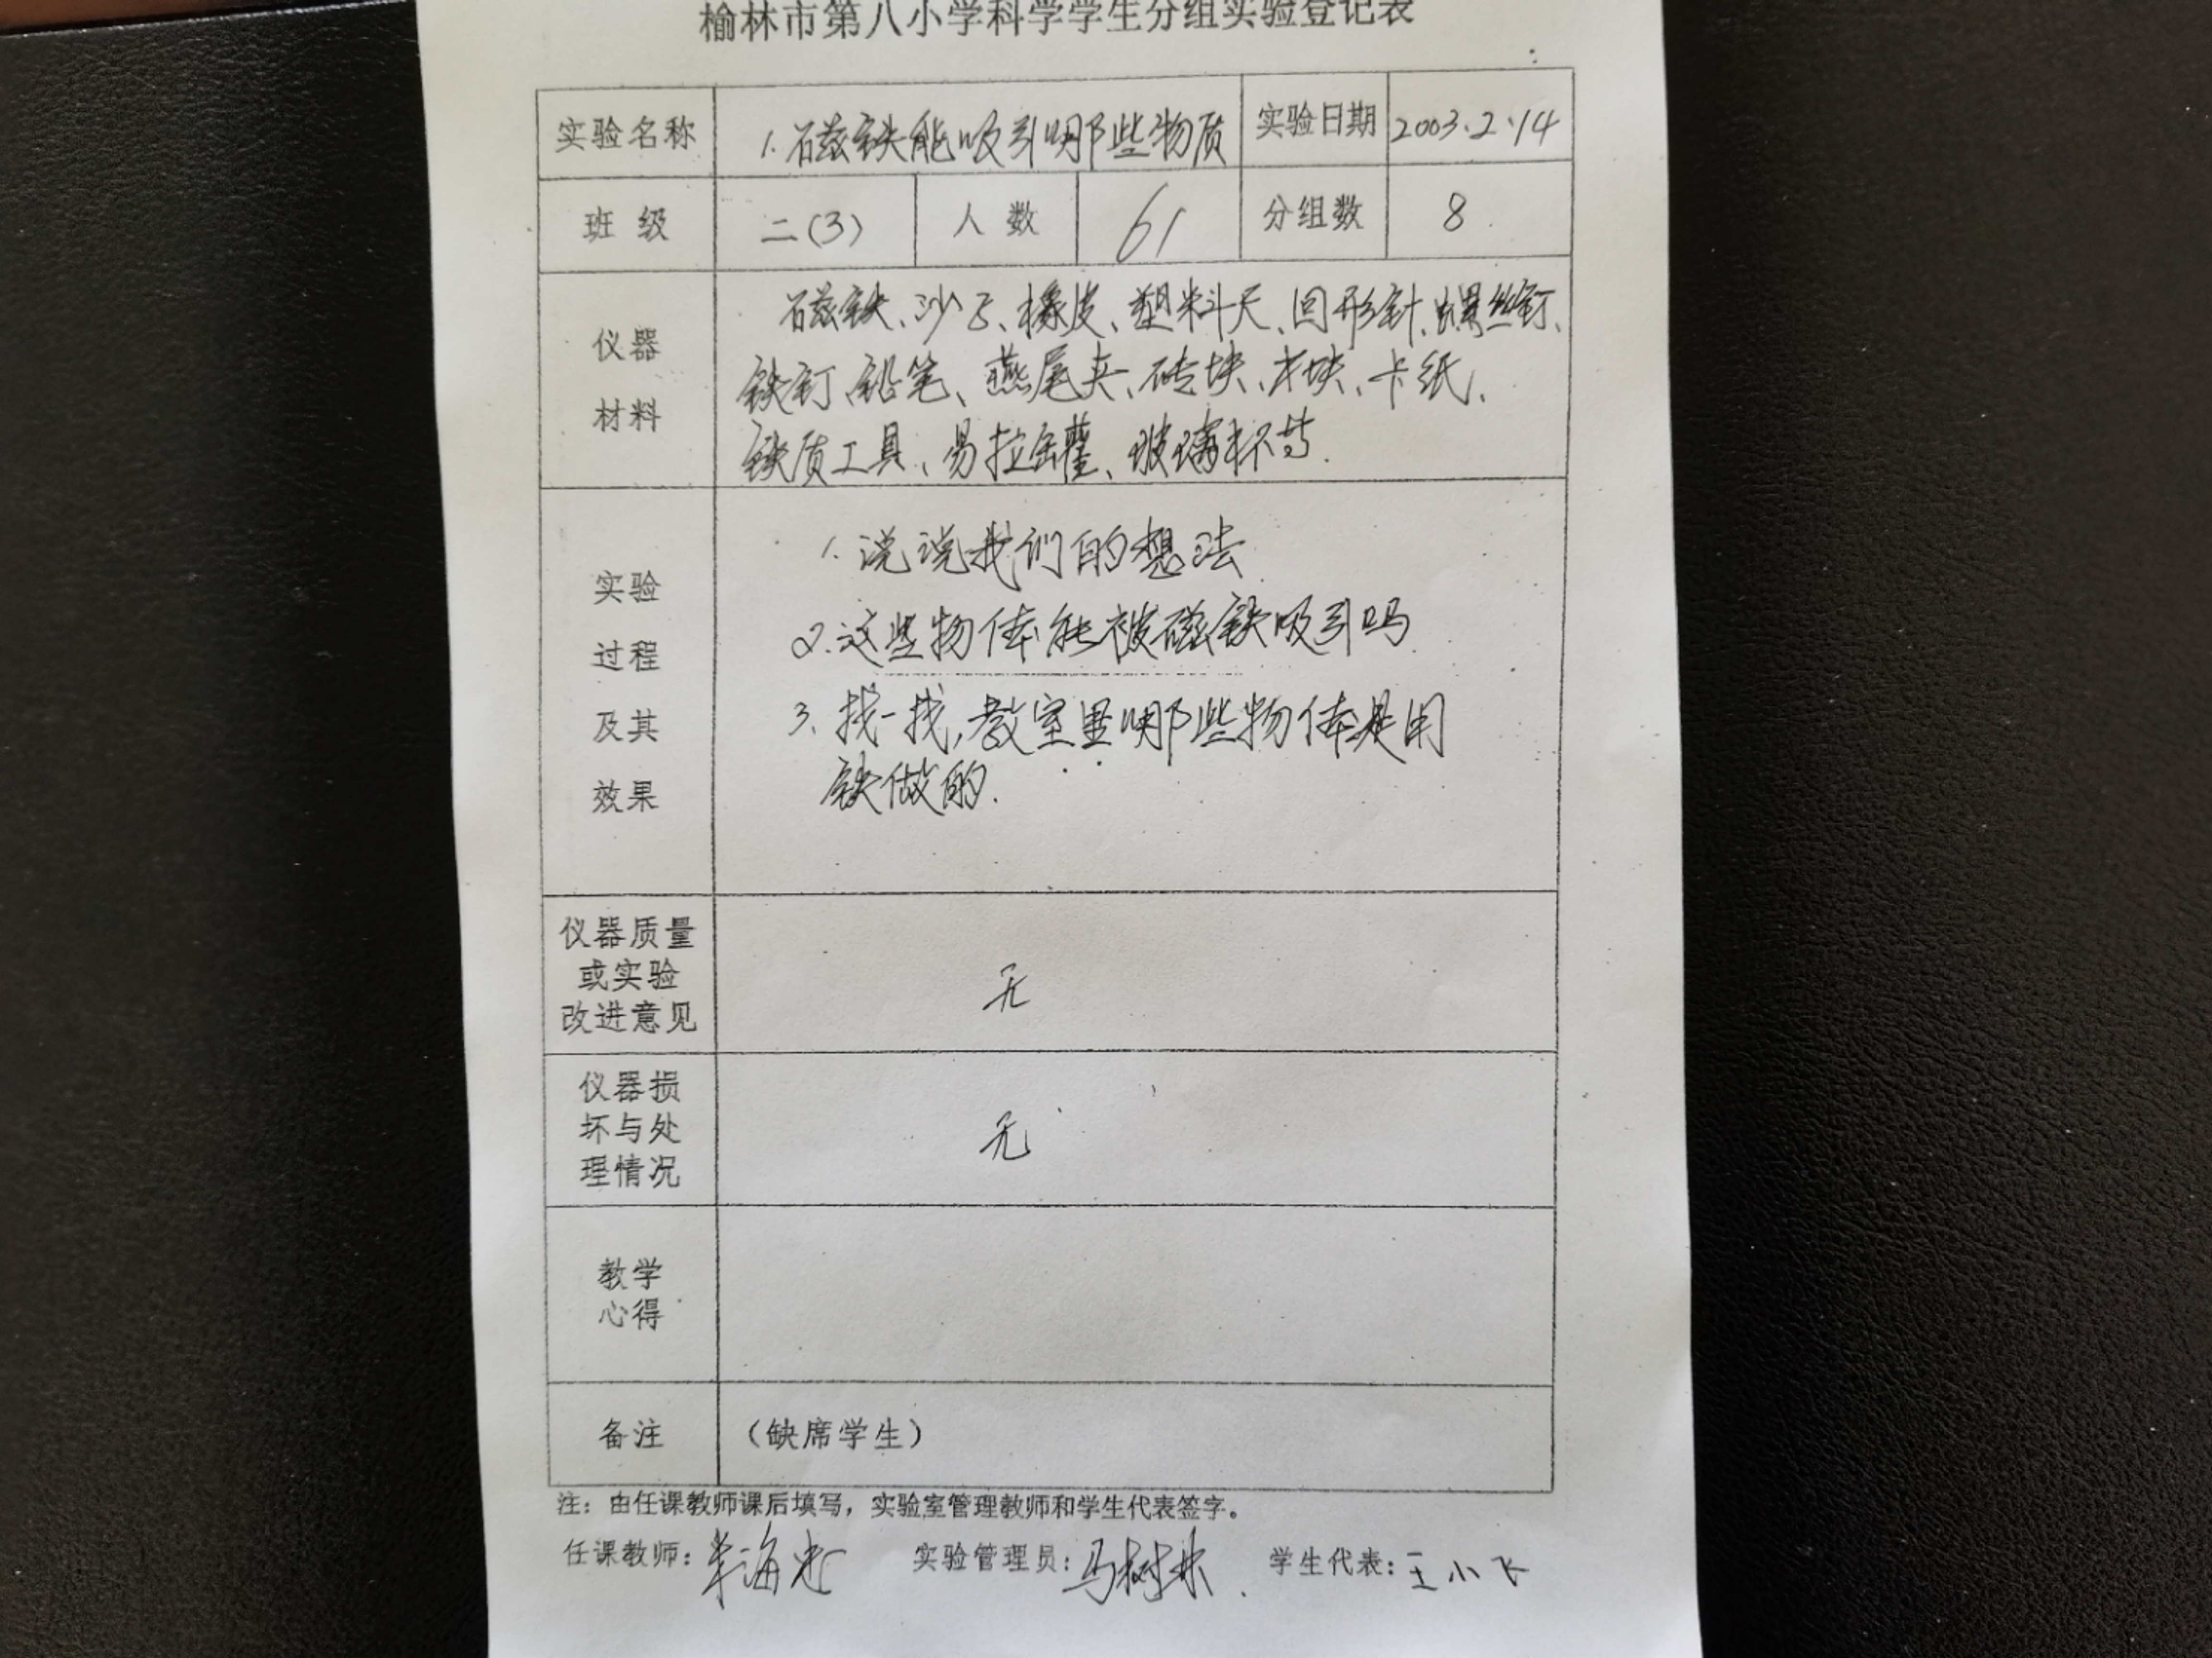 榆林市第八小学科学学生分组实验登记表
实验名称 1.磁铁能吸引哪些物质 实验日期 2003.2.14
班 级 二(3) 人 数 61 分组数 8
仪器
材料
磁铁、沙子、橡皮、塑料尺、回形针、螺丝钉、
铁钉、铅笔、燕尾夹、砖块、木块、卡纸、
铁质工具、易拉罐、玻璃杯等.
实验
过程
及其
效果
1.说说我们的想法
2.这些物体能被磁铁吸引吗
3.找一找,教室里哪些物体是用
铁做的.
仪器质量
或实验
改进意见
无
仪器损
坏与处
理情况
无
教学
心得
备注 （缺席学生）
注：由任课教师课后填写，实验室管理教师和学生代表签字。
任课教师: 实验管理员:马树林. 学生代表:王小飞